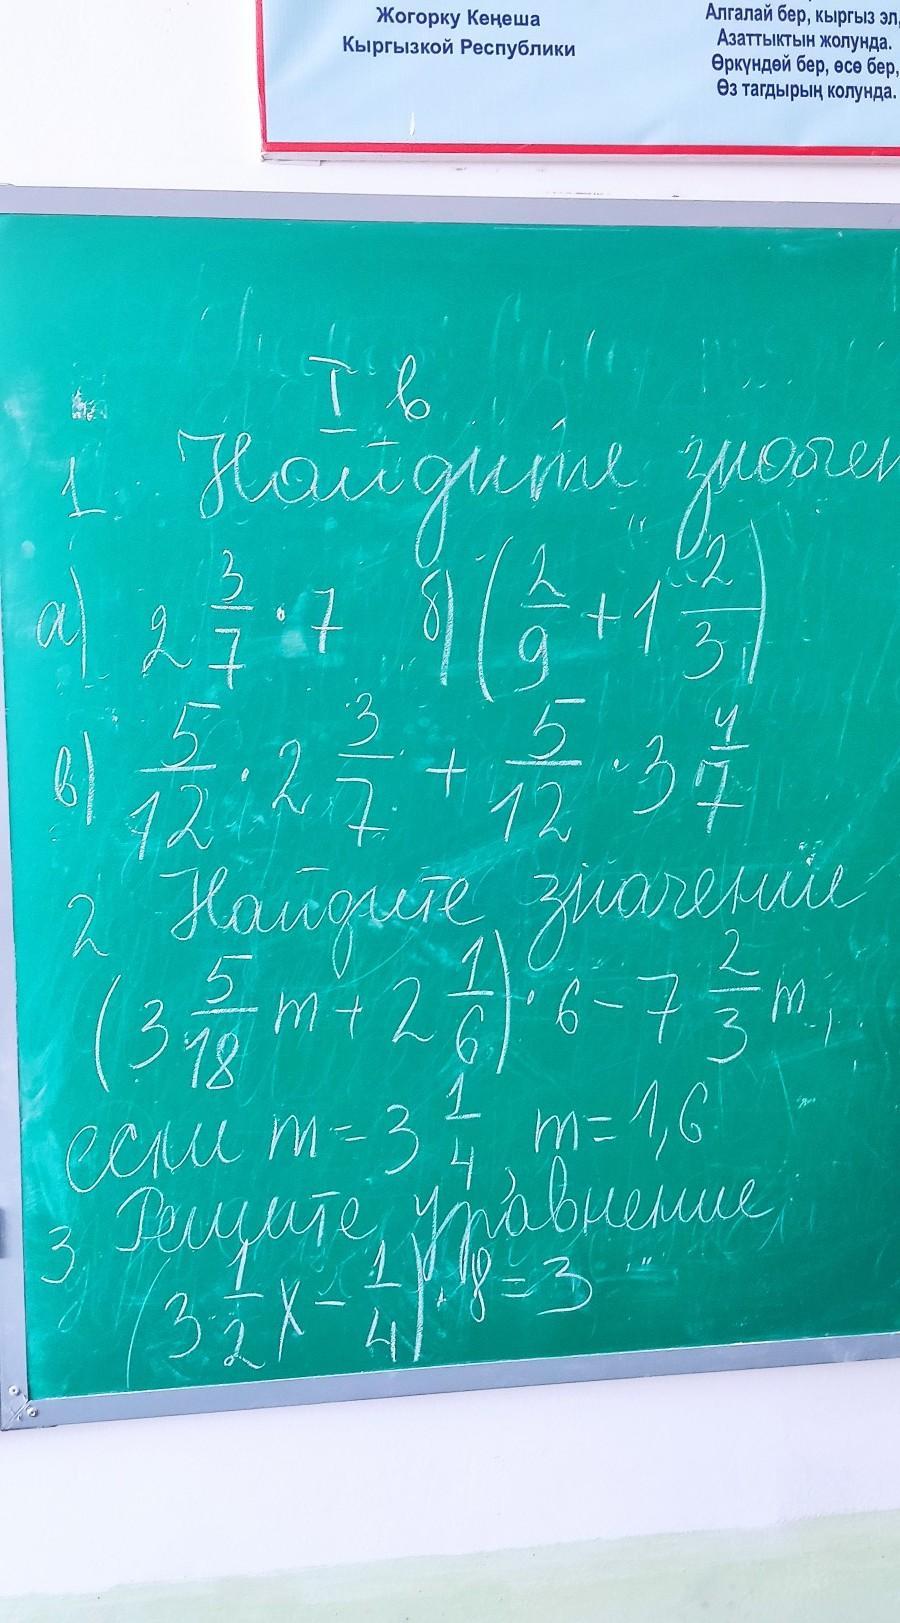 Жогорку Кеңеша
Кыргызкой Республики
Алгалай бер, кыргыз эл,
Азаттыктын жолунда.
Өркүндөй бер, өсө бер,
Өз тагдырың колунда.
I в
1 Найдите значен
а) 2 3/7 · 7 б) (2/9 + 1 2/3)
в) 5/12 · 2 3/7 + 5/12 · 3 4/7
2 Найдите значение
(3 5/18 m + 2 1/6) · 6 - 7 2/3 m,
если m = 3 1/4, m = 1,6
3 Решите уравнение
(3 1/2 x - 1/4) · 8 = 3